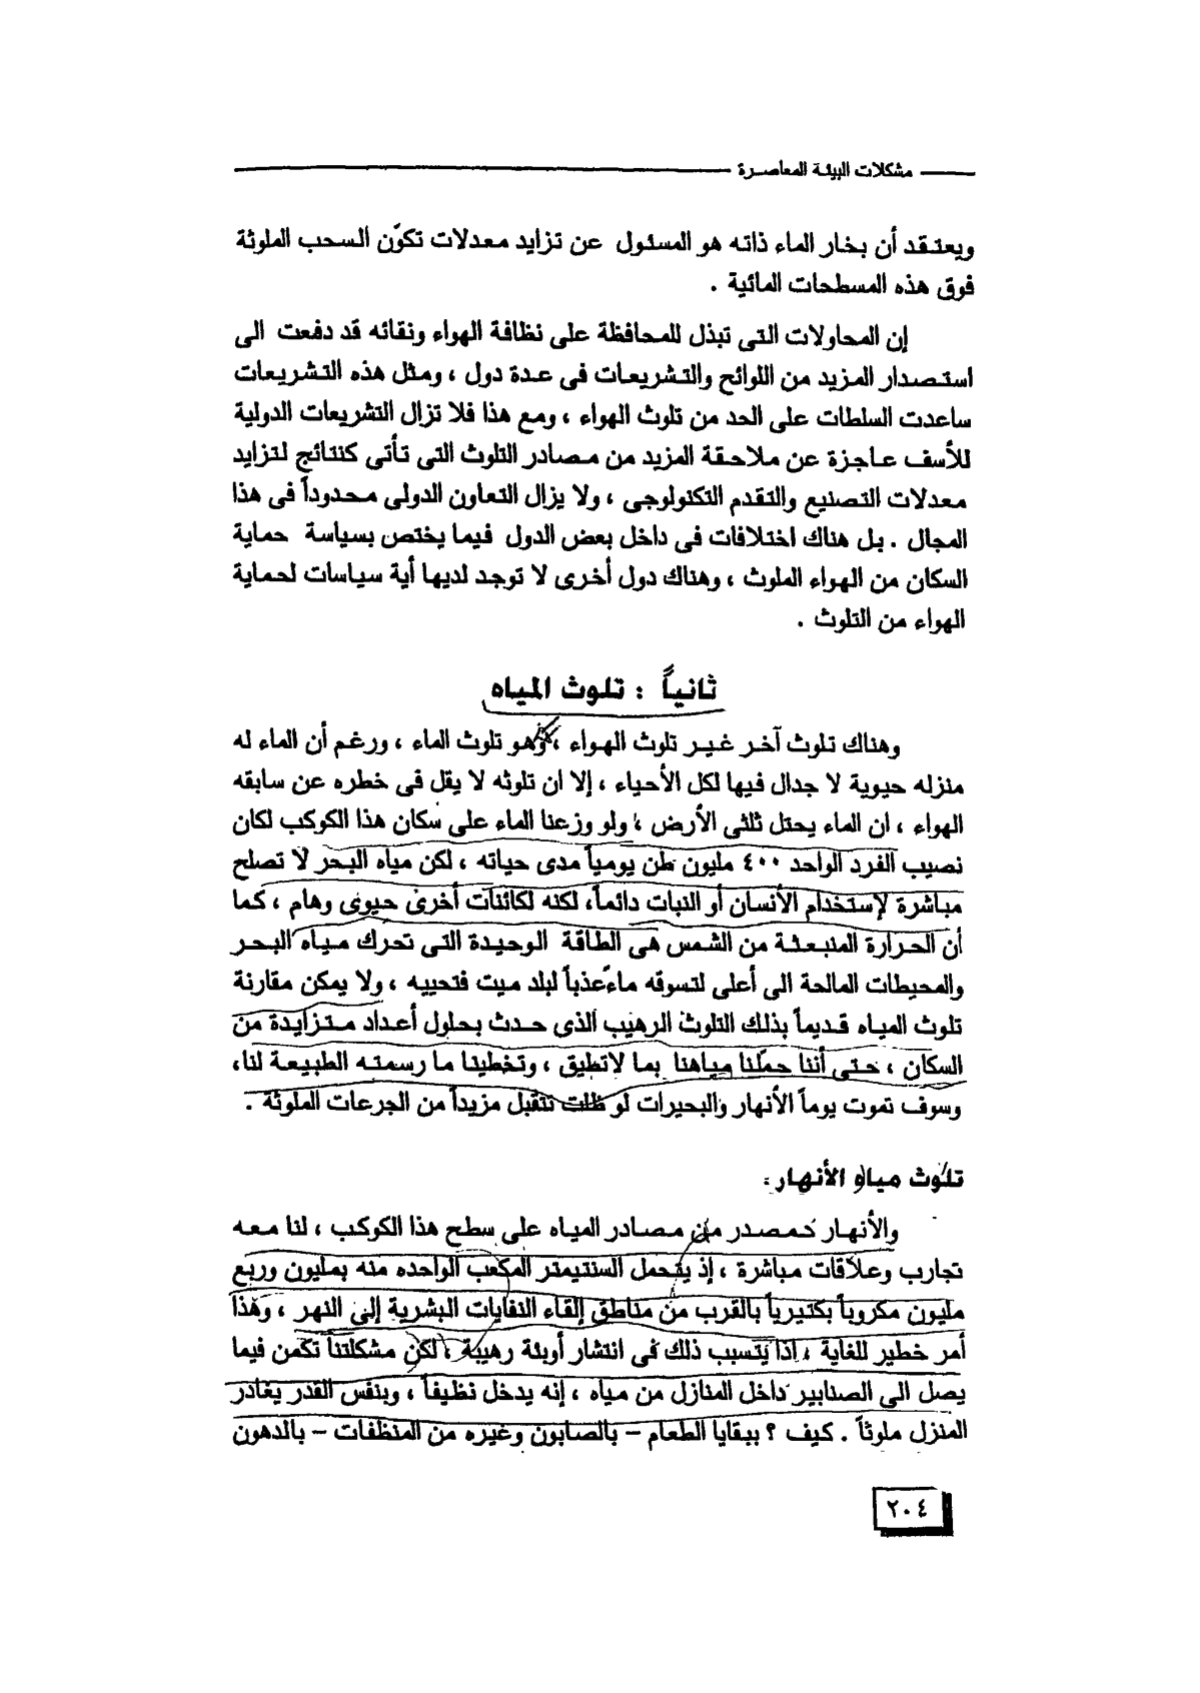 مشكلات البيئة المعاصرة
ويعتقد أن بخار الماء ذاته هو المسئول عن تزايد معدلات تكوّن السحب الملوثة
فوق هذه المسطحات المائية .
إن المحاولات التى تبذل للمحافظة على نظافة الهواء ونقائه قد دفعت الى
استصدار المزيد من اللوائح والتشريعات فى عدة دول ، ومثل هذه التشريعات
ساعدت السلطات على الحد من تلوث الهواء ، ومع هذا فلا تزال التشريعات الدولية
للأسف عاجزة عن ملاحقة المزيد من مصادر التلوث التى تأتى كنتائج لتزايد
معدلات التصنيع والتقدم التكنولوجى ، ولا يزال التعاون الدولى محدوداً فى هذا
المجال . بل هناك اختلافات فى داخل بعض الدول فيما يختص بسياسة حماية
السكان من الهواء الملوث ، وهناك دول أخرى لا توجد لديها أية سياسات لحماية
الهواء من التلوث .
ثانياً : تلوث المياه
وهناك تلوث آخر غير تلوث الهواء ، وهو تلوث الماء ، ورغم أن الماء له
منزله حيوية لا جدال فيها لكل الأحياء ، إلا ان تلوثه لا يقل فى خطره عن سابقه
الهواء ، ان الماء يحتل ثلثى الأرض ، ولو وزعنا الماء على سكان هذا الكوكب لكان
نصيب الفرد الواحد ٤٠٠ مليون طن يومياً مدى حياته ، لكن مياه البحر لا تصلح
مباشرة لإستخدام الأنسان أو النبات دائماً، لكنه لكائنات أخرى حيوى وهام ، كما
أن الحرارة المنبعثة من الشمس هى الطاقة الوحيدة التى تحرك مياه البحر
والمحيطات المالحة الى أعلى لتسوقه ماءً عذباً لبلد ميت فتحييه ، ولا يمكن مقارنة
تلوث المياه قديماً بذلك التلوث الرهيب الذى حدث بحلول أعداد متزايدة من
السكان ، حتى أننا حمّلنا مياهنا بما لاتطيق ، وتخطينا ما رسمته الطبيعة لنا،
وسوف تموت يوماً الأنهار والبحيرات لو ظلت تتقبل مزيداً من الجرعات الملوثة .
تلوث مياه الأنهار :
والأنهار كمصدر من مصادر المياه على سطح هذا الكوكب ، لنا معه
تجارب وعلاقات مباشرة ، إذ يتحمل السنتيمتر المكعب الواحده منه بمليون وربع
مليون مكروباً بكتيرياً بالقرب من مناطق إلقاء النفايات البشرية إلى النهر ، وهذا
أمر خطير للغاية ، إذا يتسبب ذلك فى انتشار أوبئة رهيبة ، لكن مشكلتنا تكمن فيما
يصل الى الصنابير داخل المنازل من مياه ، إنه يدخل نظيفاً ، وبنفس القدر يغادر
المنزل ملوثاً . كيف ؟ ببقايا الطعام – بالصابون وغيره من المنظفات – بالدهون
٢٠٤